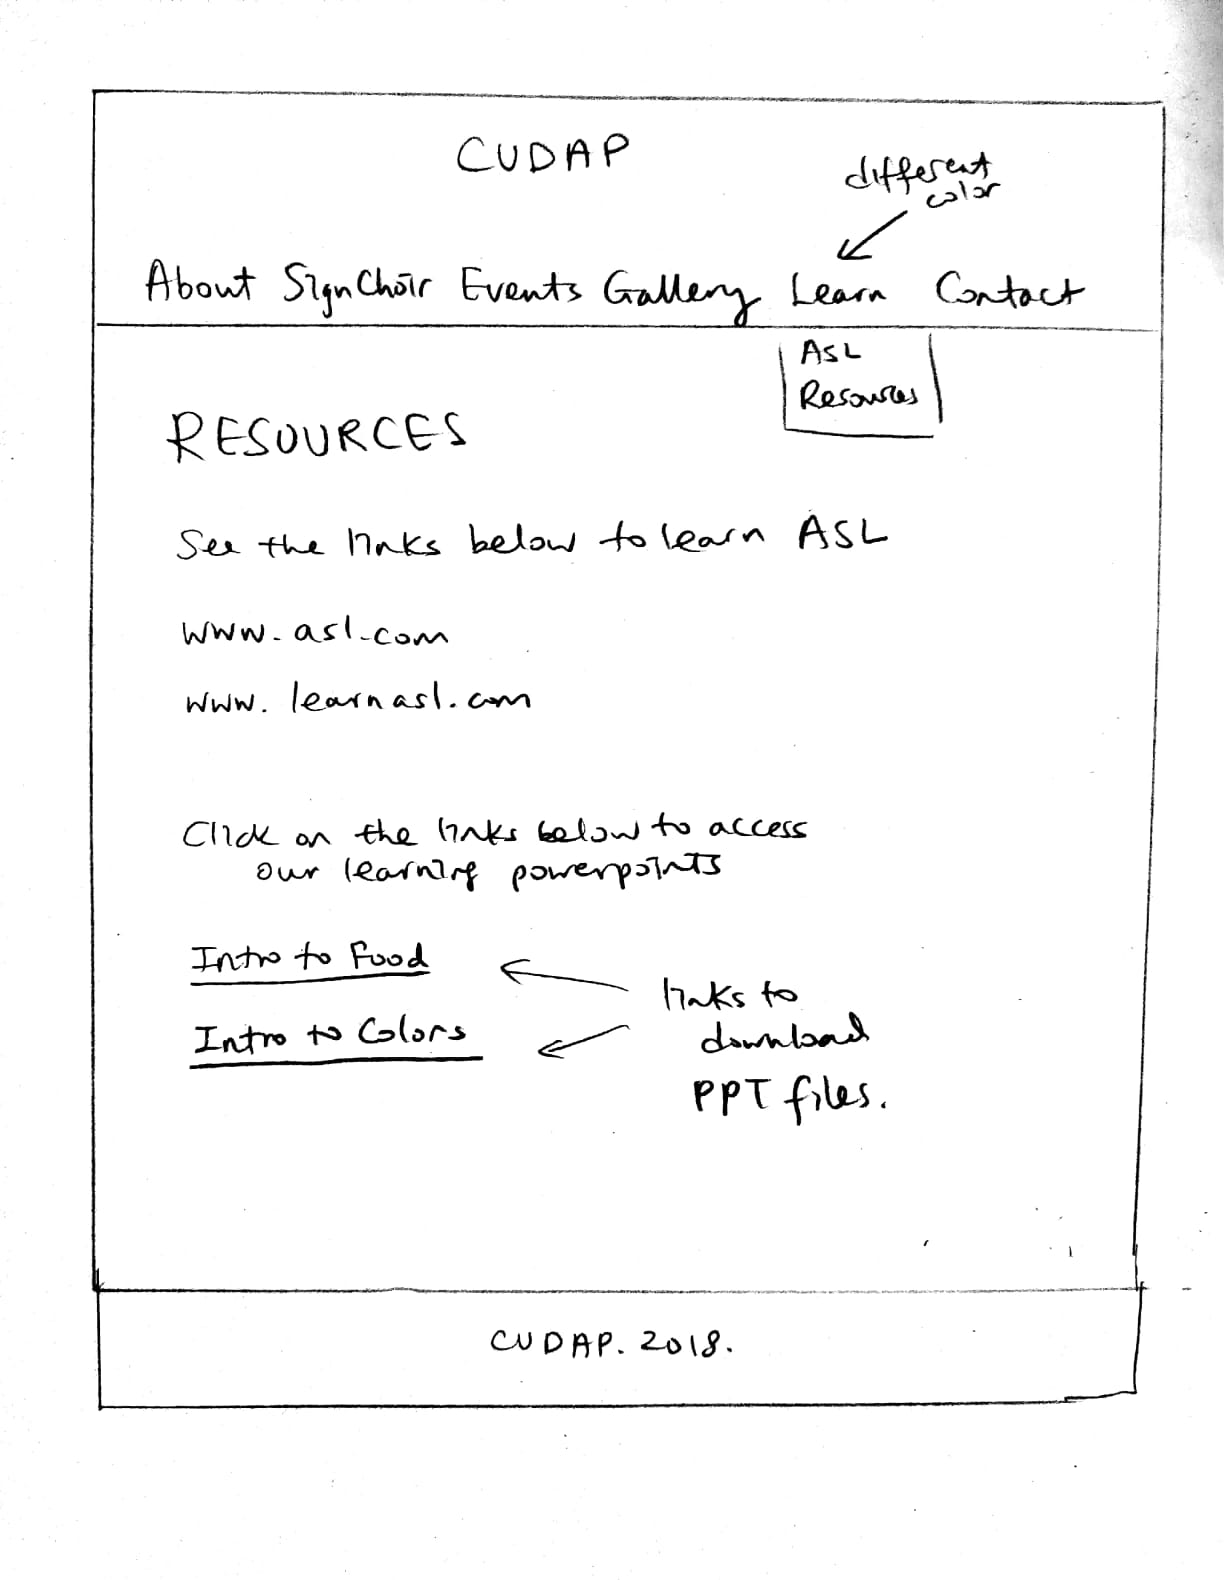 CUDAP
different
color
About SignChoir Events Gallery Learn Contact
ASL
Resources
RESOURCES
See the links below to learn ASL
www.asl.com
www.learnasl.com
Click on the links below to access
our learning powerpoints
Intro to Food
Intro to Colors
links to
download
PPT files.
CUDAP. 2018.